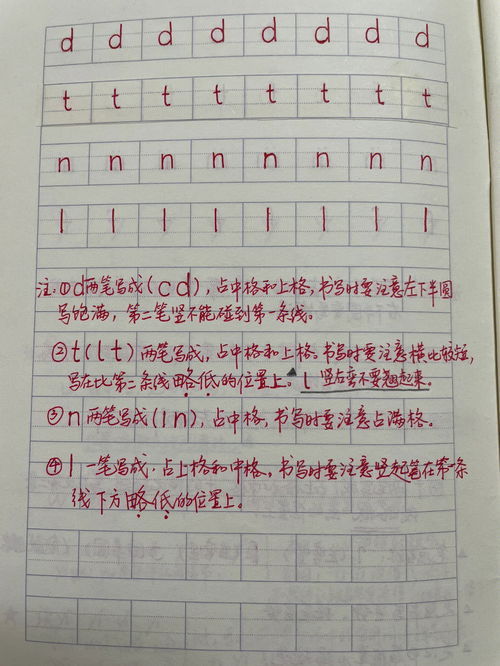 d d d d d d d d
t t t t t t t t
n n n n n n n n
l l l l l l l l
注:①d两笔写成(c d),占中格和上格,书写时要注意左下半圆
写饱满,第二笔竖不能碰到第一条线。
②t(l t)两笔写成,占中格和上格。书写时要注意横比较短,
写在比第二条线略低的位置上。l 竖右弯不要翘起来。
③n两笔写成(l n),占中格,书写时要注意占满格。
④l一笔写成·占上格和中格,书写时要注意竖起笔在第一条
线下方略低的位置上。